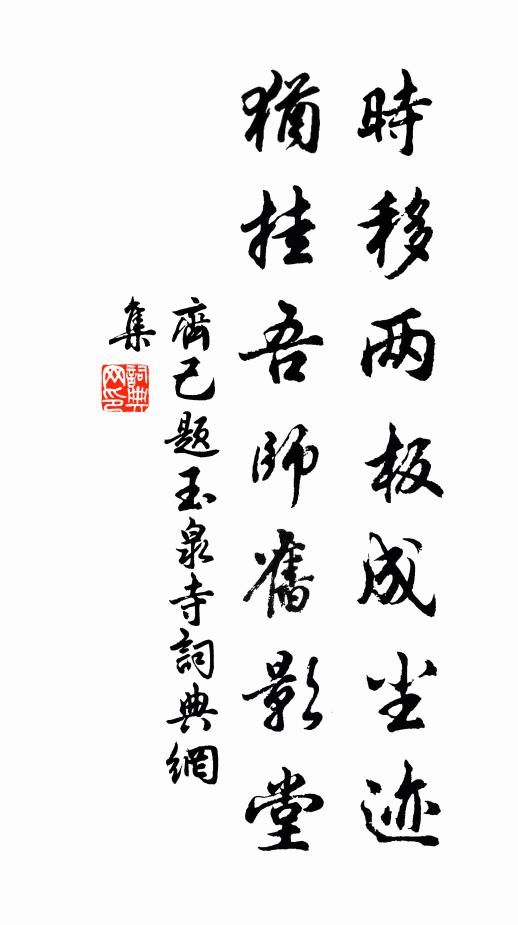 時移两板成尘迹
猶挂吾師舊影堂
齊己題玉泉寺詞典網
集
詞典
网印